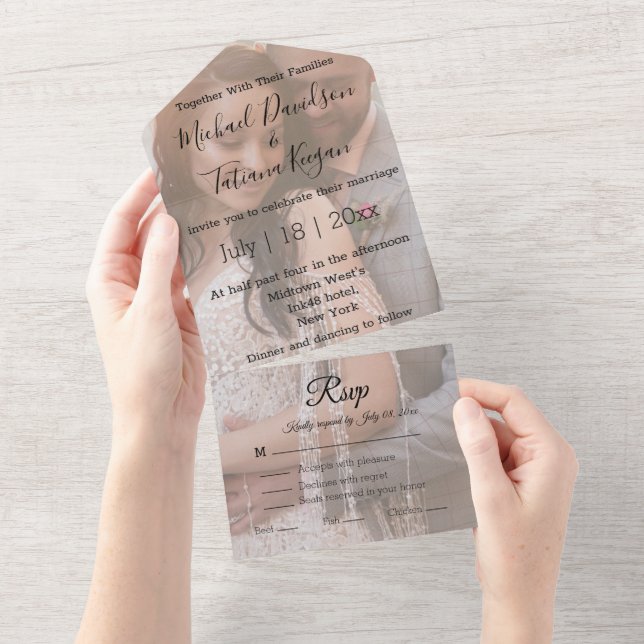 Together With Their Families
Michael Davidson
&
Tatiana Keegan
invite you to celebrate their marriage
July | 18 | 20xx
At half past four in the afternoon
Midtown West's
Ink48 hotel,
New York
Dinner and dancing to follow
Rsvp
Kindly respond by July 08, 20xx
M
Accepts with pleasure
Declines with regret
Seats reserved in your honor
Beef Fish Chicken